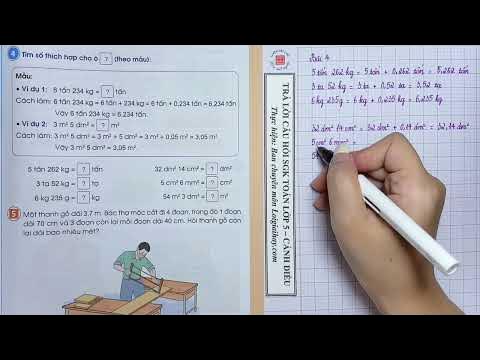 4 Tìm số thích hợp cho ô ? (theo mẫu):
Mẫu:
• Ví dụ 1: 6 tấn 234 kg = ? tấn
Cách làm: 6 tấn 234 kg = 6 tấn + 234 kg = 6 tấn + 0,234 tấn = 6,234 tấn.
Vậy 6 tấn 234 kg = 6,234 tấn.
• Ví dụ 2: 3 m² 5 dm² = ? m²
Cách làm: 3 m² 5 dm² = 3 m² + 5 dm² = 3 m² + 0,05 m² = 3,05 m².
Vậy 3 m² 5 dm² = 3,05 m².
5 tấn 262 kg = ? tấn
3 tạ 52 kg = ? tạ
6 kg 235 g = ? kg
32 dm² 14 cm² = ? dm²
5 cm² 6 mm² = ? cm²
54 m² 3 dm² = ? m²
5 Một thanh gỗ dài 3,7 m. Bác thợ mộc cắt đi 4 đoạn, trong đó 1 đoạn
dài 70 cm và 3 đoạn còn lại mỗi đoạn dài 40 cm. Hỏi thanh gỗ còn
lại dài bao nhiêu mét?
TRẢ LỜI CÂU HỎI SGK TOÁN LỚP 5 – CÁNH DIỀU
Thực hiện: Ban chuyên môn Loigiaihay.com
Bài 4
5 tấn 262 kg = 5 tấn + 0,262 tấn = 5,262 tấn
3 tạ 52 kg = 3 tạ + 0,52 tạ = 3,52 tạ
6 kg 235g = 6 kg + 0,235 kg = 6,235 kg
32 dm² 14 cm² = 32 dm² + 0,14 dm² = 32,14 dm²
5 cm² 6 mm² =